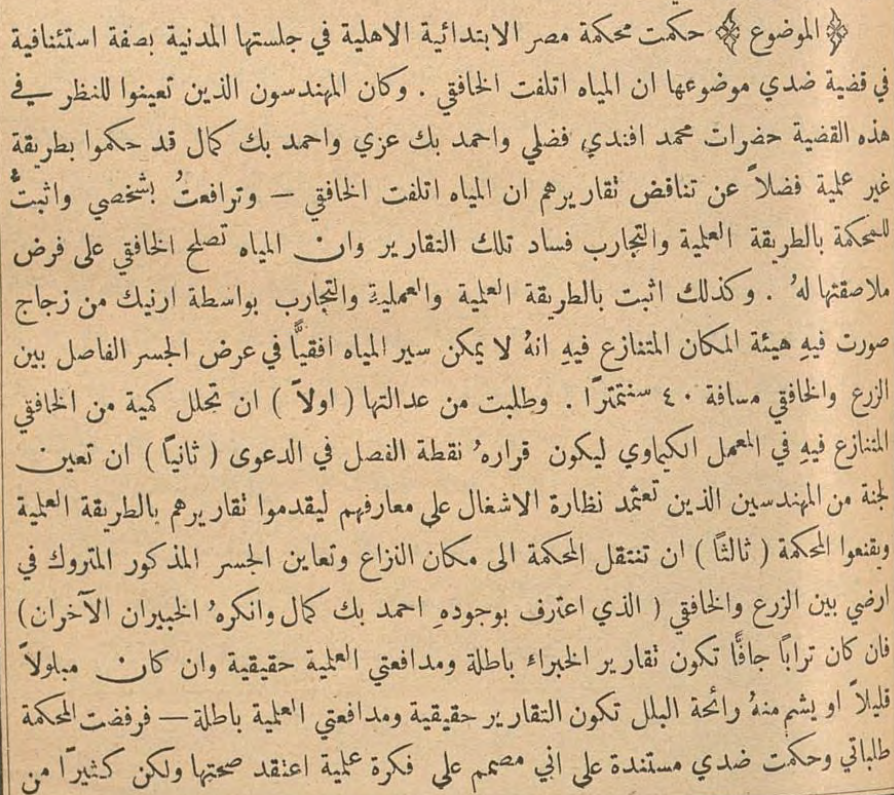 ﴿ الموضوع ﴾ حكمت محكمة مصر الابتدائية الاهلية في جلستها المدنية بصفة استئنافية
في قضية ضدي موضوعها ان المياه اتلفت الخافقي . وكان المهندسون الذين تعينوا للنظر في
هذه القضية حضرات محمد افندي فضلي واحمد بك عزي واحمد بك كمال قد حكموا بطريقة
غير علمية فضلاً عن تناقض تقاريرهم ان المياه اتلفت الخافقي — وترافعتُ بشخصي واثبتُّ
للمحكمة بالطريقة العلمية والتجارب فساد تلك التقارير وان المياه تصلح الخافقي على فرض
ملاصقتها لهُ . وكذلك اثبت بالطريقة العلمية والعملية والتجارب بواسطة ارنيك من زجاج
صورت فيهِ هيئة المكان المتنازع فيهِ انهُ لا يمكن سير المياه افقيًّا في عرض الجسر الفاصل بين
الزرع والخافقي مسافة ٤٠ سنتمترًا . وطلبت من عدالتها ( اولاً ) ان تحلل كمية من الخافقي
المتنازع فيهِ في المعمل الكيماوي ليكون قراره نقطة الفصل في الدعوى ( ثانياً ) ان تعين
لجنة من المهندسين الذين تعتمد نظارة الاشغال على معارفهم ليقدموا تقاريرهم بالطريقة العلمية
ويقنعوا المحكمة ( ثالثًا ) ان تنتقل المحكمة الى مكان النزاع وتعاين الجسر المذكور المتروك في
ارضي بين الزرع والخافقي ( الذي اعترف بوجودهِ احمد بك كمال وانكرهُ الخبيران الآخران)
فان كان ترابًا جافًّا تكون تقارير الخبراء باطلة ومدافعتي العلمية حقيقية وان كان مبلولاً
قليلاً او يشم منهُ رائحة البلل تكون التقارير حقيقية ومدافعتي العلمية باطلة — فرفضت المحكمة
طلباتي وحكمت ضدي مستندة على اني مصمم على فكرة علمية اعتقد صحتها ولكن كثيرًا من